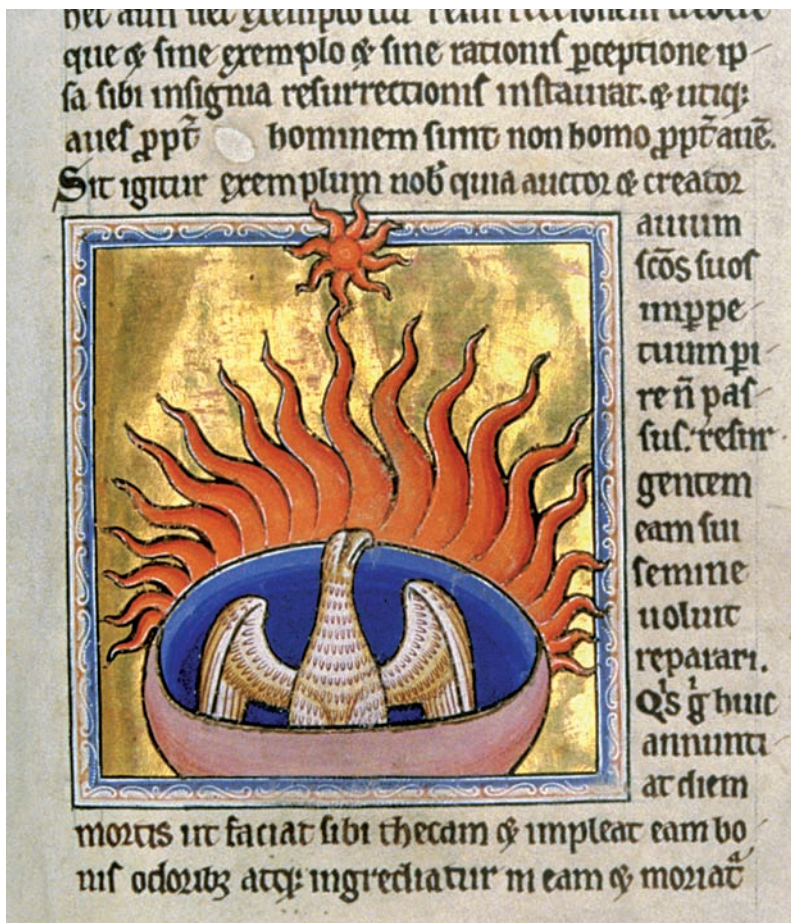 que & sine exemplo & sine rationis ꝑceptione ip
sa sibi insignia resurrectionis instaurat. & utiq;
aues ꝓpt̃ hominem sunt non homo ꝓpt̃ auē.
Sit igitur exemplum nob̾ quia auctor & creator
auium
sc̄os suos
imꝑpe
tuum pi
re n̄ pas
sus: resur
gentem
eam sui
semine
uoluit
reparari.
Qͥs gͥ huic
annunti
at diem
mortis ut faciat sibi thecam & impleat eam bo
nis odoribꝫ atq; ingrediatur in eam & moriatᷓ